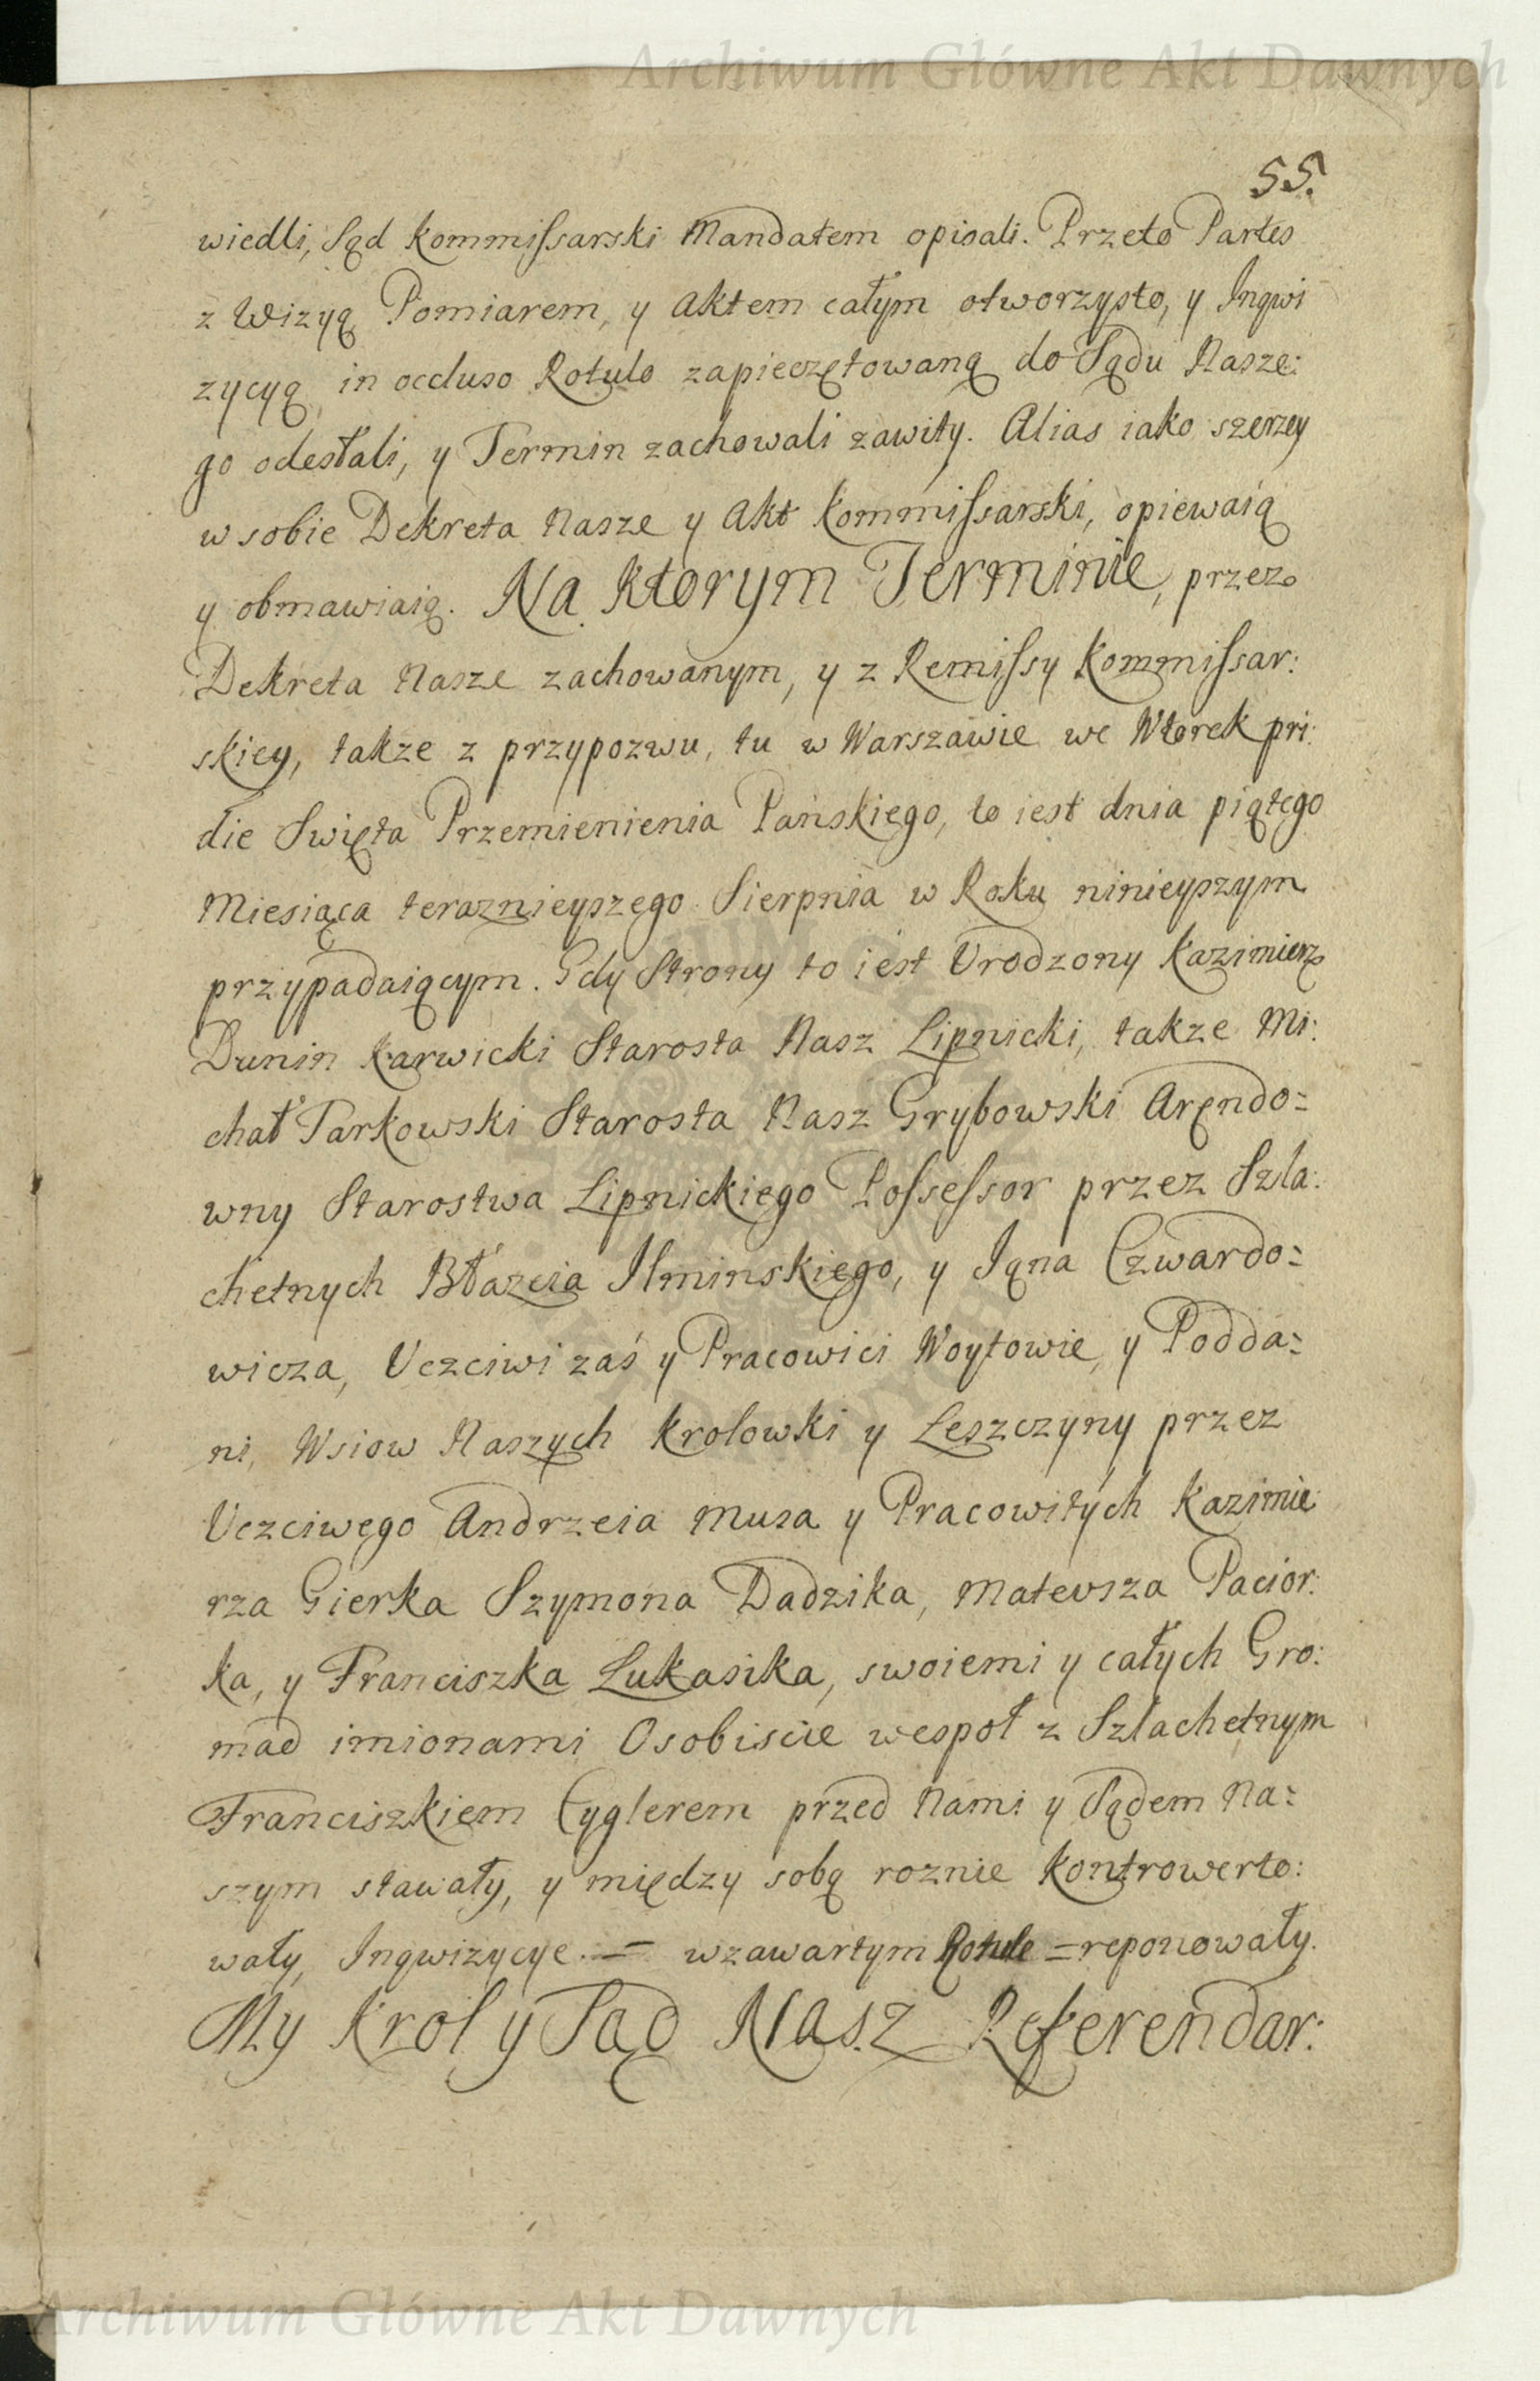 Archiwum Główne Akt Dawnych
55.
wiedli, Sąd Kommissarski Mandatem opisali. Przeto Partes
z Wizyą Pomiarem, y Aktem całym otworzysto, y Inqwi
zycyą in occluso Rotulo zapieczętowaną do Sądu Nasze:
go odesłali, y Termin zachowali zawity. Alias iako szerzey
w sobie Dekreta Nasze y Akt Kommissarski, opiewaią
y obmawiaią. Na Ktorym Terminie, przez
Dekreta Nasze zachowanym, y z Remissy Kommissar:
skiey, takze z przypozwu, tu w Warszawie we Wtorek pri:
die Swięta Przemienienia Pańskiego, to iest dnia piątego
Miesiąca teraznieyszego Sierpnia w Roku ninieyszym
przypadaiącym. Gdy Strony to iest Urodzony Kazimierz
Dunin Karwicki Starosta Nasz Lipnicki, takze Mi:
chał Tarkowski Starosta Nasz Grybowski Arendo=
wny Starostwa Lipnickiego Possessor przez Szla:
chetnych Błażeia Ilminskiego, y Iana Czwardo=
wicza, Uczciwi zaś y Pracowici Woytowie, y Podda=
ni, Wsiow Naszych Krolowki y Leszczyny przez
Uczciwego Andrzeia Musa y Pracowitych Kazimie
rza Gierka Szymona Dadzika, Mateusza Pacior:
ka, y Franciszka Lukasika, swoiemi y całych Gro:
mad imionami Osobiscie wespoł z Szlachetnym
Franciszkiem Cyglerem przed Nami y Sądem Na=
szym stawały, y między sobą roznie Kontrowerto:
wały, Inqwizycye. = w zawartym Rotule = reponowały.
My Krol y Sąd Nasz Referendar:
Archiwum Główne Akt Dawnych